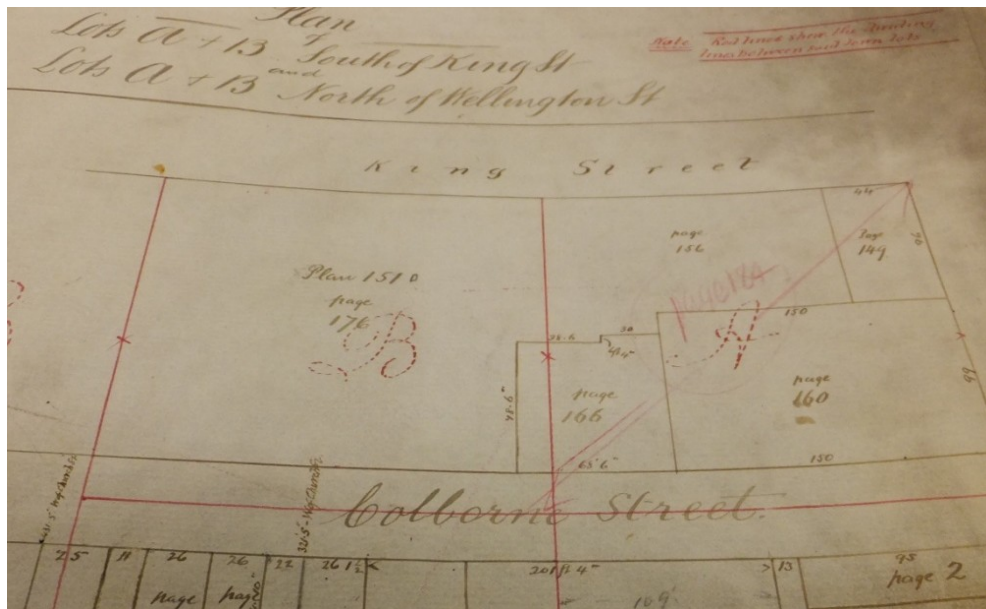 Plan
of
Lots A + B South of King St
and
Lots A + B North of Wellington St
Note Red lines show the dividing
lines between said Town lots
King Street
44
page
156
Page
149
90
Plan 151 D
page
176
B
page 184
A
150
38.6
30
48.6"
page
166
page
160
99
65'6"
150
Colborne Street.
25
11
26
26
22
26 1/2
201 ft 4"
13
95
page 2
page
page
109